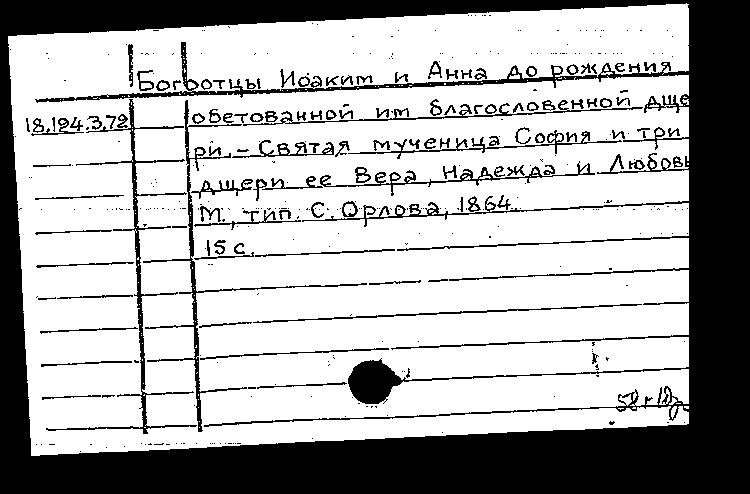 Богоотцы Иоаким и Анна до рождения
18.194.3.72 обетованной им благословенной дще
ри. – Святая мученица София и три
дщери ее Вера, Надежда и Любовь
М., тип. С. Орлова, 1864.
15 с.